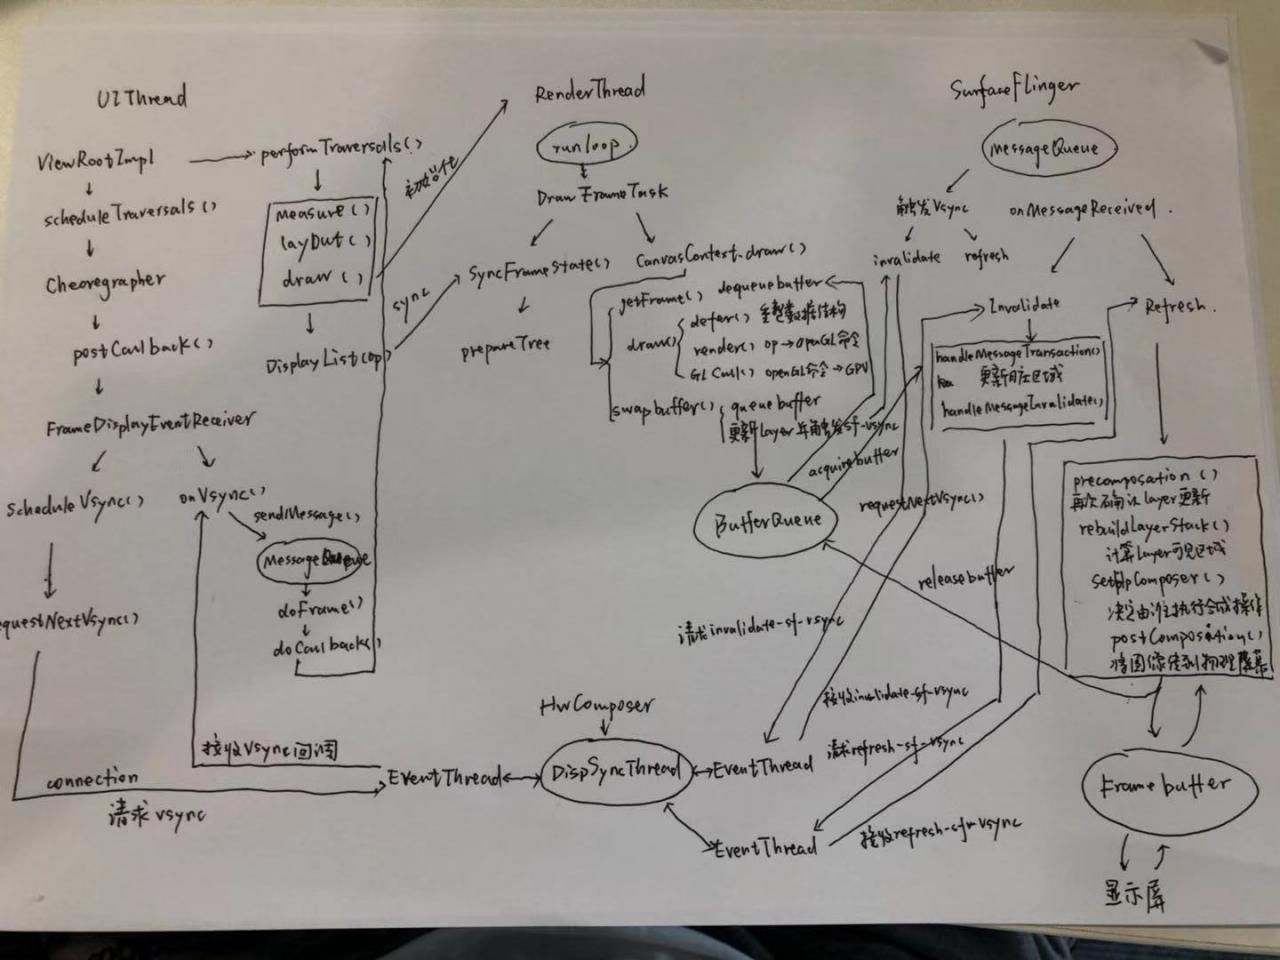 UIThread
ViewRootImpl
performTraversals()
scheduleTraversals()
measure()
layout()
draw()
初始化
Cheoregrapher
postCallback()
DisplayList(op)
sync
FrameDisplayEventReceiver
ScheduleVsync()
onVsync()
sendMessage()
MessageQueue
doFrame()
doCallback()
equestNextVsync()
接收Vsync回调
connection
请求vsync
RenderThread
runloop
DrawFrameTask
SyncFrameState()
CanvasContext.draw()
prepareTree
getFrame() dequeuebuffer
draw()
defer() 重整数据结构
render() op→OpenGL命令
GL Call() openGL命令→GPU
swapbuffer()
queuebuffer
更新Layer并触发sf-vsync
BufferQueue
acquirebuffer
SurfaceFlinger
MessageQueue
触发Vsync
onMessageReceived.
invalidate
refresh
Invalidate
Refresh.
handleMessageTransaction()
更新相应区域
handleMessageInvalidate()
requestNextVsync()
releasebuffer
precomposation()
再次确认layer更新
rebuildLayerStack()
计算Layer可见区域
setUpComposer()
决定由谁执行合成操作
postComposition()
将图像传到物理屏幕
请求invalidate-sf-vsync
接收invalidate-sf-vsync
请求refresh-sf-vsync
接收refresh-sf-vsync
HwComposer
EventThread
DispSyncThread
EventThread
EventThread
Framebuffer
显示屏